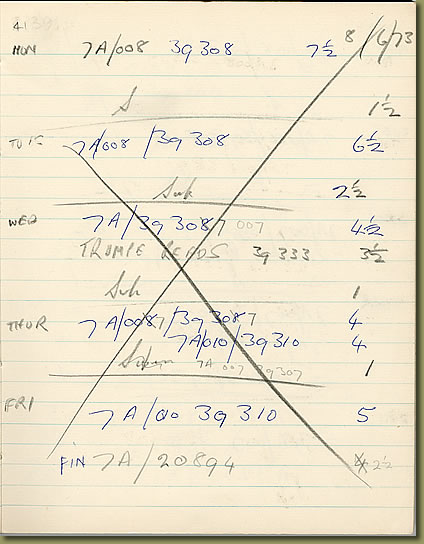 41
8/6/73
MON 7A/008 39308 7½
S 1½
TUES 7A/008 /39308 6½
Sub 2½
WED 7A/393087 007 4½
TRUMPE READS 39333 3½
Sub 1
THUR 7A/0087/393087 4
7A/010/39310 4
7A 007 39307 1
FRI 7A/010 39310 5
FIN 7A/20894 2½